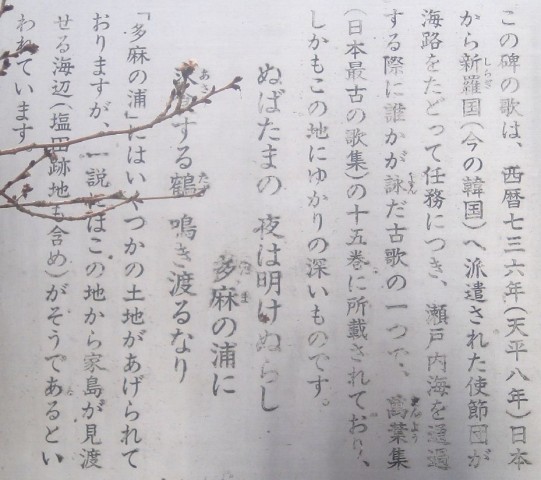 この碑の歌は、西暦七三六年(天平八年)日本
から新羅国(今の韓国)へ派遣された使節団が
海路をたどって任務につき、瀬戸内海を通過
する際に誰かが詠だ古歌の一つで、萬葉集
(日本最古の歌集)の十五巻に所載されており、
しかもこの地にゆかりの深いものです。
ぬばたまの 夜は明けぬらし
多麻の浦に
する鶴 鳴き渡るなり
「多麻の浦」にはいくつかの土地があげられて
おりますが、一説にはこの地から家島が見渡
せる海辺(塩田跡地も含め)がそうであるとい
われています